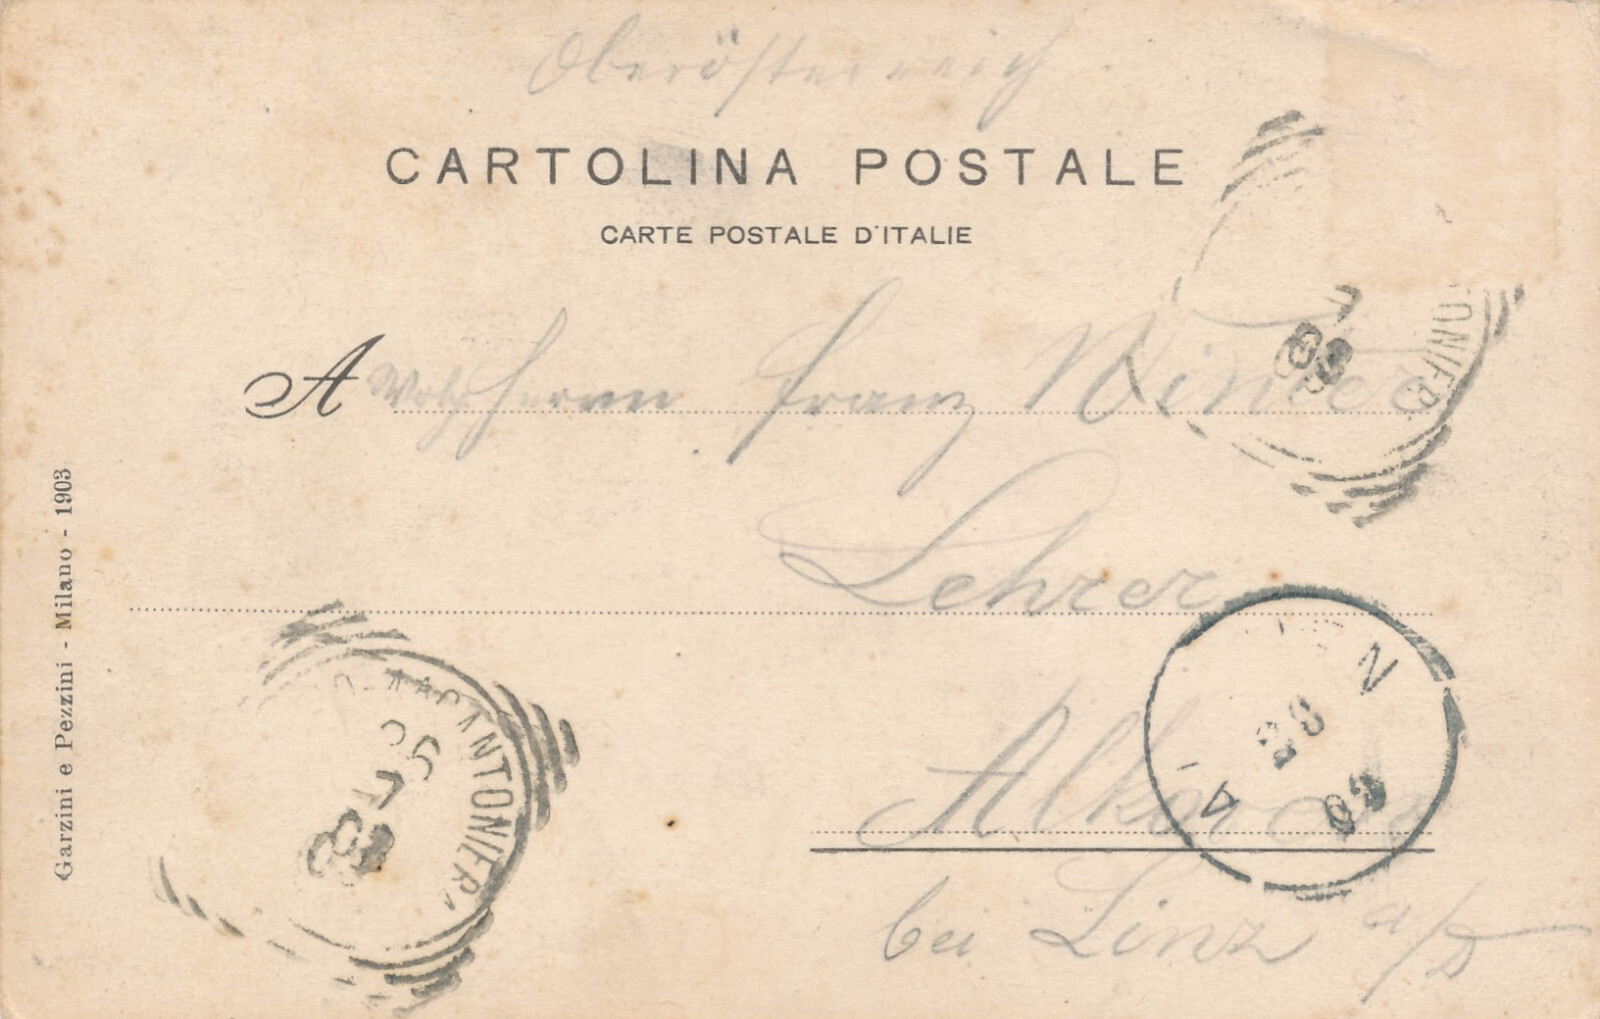 Oberösterreich
CARTOLINA POSTALE
CARTE POSTALE D'ITALIE
A Wohl Herrn Franz Winter
Lehrer
bei Linz a/D
Garzini e Pezzini - Milano - 1903
ANTONIFR
ONIFR
7